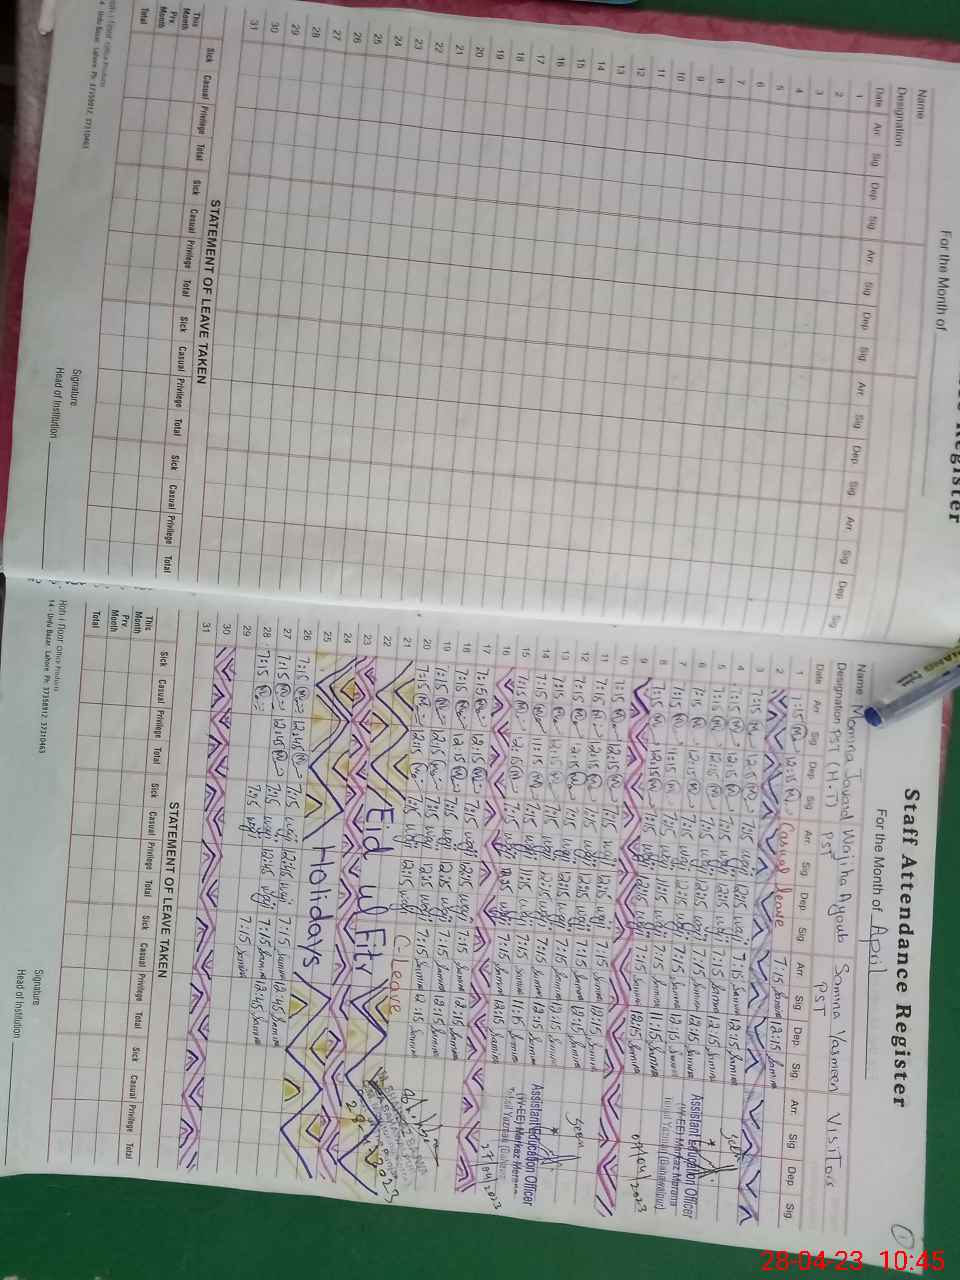 Staff Attendance Register
For the Month of April
Name Momina Javaid Wajiha Ayoub Samina Yasmeen Visitors
Designation PST (H.T) PST PST
Date Arr. Sig Dep. Sig Arr. Sig Dep Sig Arr. Sig Dep. Sig Arr. Sig Dep Sig
1 7:15 12:15 Casual leave 7:15 Samina 12:15 Samina
2
3 7:15 12:15 7:15 waji 12:15 waji 7:15 Samina 12:15 Samina
4 7:15 12:15 7:15 waji 12:15 waji 7:15 Samina 12:15 Samina
5 7:15 12:15 7:15 waji 12:15 waji 7:15 Samina 12:15 Samina
6 7:15 12:15 7:15 waji 12:15 waji 7:15 Samina 12:15 Samina
7 7:15 11:15 7:15 waji 11:15 waji 7:15 Samina 11:15 Samina
8 7:15 12:15 7:15 waji 12:15 waji 7:15 Samina 12:15 Samina
9
10 7:15 12:15 7:15 waji 12:15 waji 7:15 Samina 12:15 Samina
11 7:15 12:15 7:15 waji 12:15 waji 7:15 Samina 12:15 Samina
12 7:15 12:15 7:15 waji 12:15 waji 7:15 Samina 12:15 Samina
13 7:15 12:15 7:15 waji 12:15 waji 7:15 Samina 12:15 Samina
14 7:15 11:15 7:15 waji 11:15 waji 7:15 Samina 11:15 Samina
15 7:15 12:15 7:15 waji 12:15 waji 7:15 Samina 12:15 Samina
16
17 7:15 12:15 7:15 waji 12:15 waji 7:15 Samina 12:15 Samina
18 7:15 12:15 7:15 waji 12:15 waji 7:15 Samina 12:15 Samina
19 7:15 12:15 7:15 waji 12:15 waji 7:15 Samina 12:15 Samina
20 7:15 12:15 7:15 waji 12:15 waji C leave
21
22 Eid ul Fitr
23
24
25 Holidays
26 7:15 12:45 7:15 waji 12:45 waji 7:15 Samina 12:45 Samina
27 7:15 12:45 7:15 waji 12:45 waji 7:15 Samina 12:45 Samina
28 7:15 7:15 waji 7:15 Samina
29
30
31
Seen
Assistant Education Officer
(W-EE) Markaz Marana
Tehsil Yazman (Bahawalpur)
07/04/2023
Seen
Assistant Education Officer
(W-EE) Markaz Marana
17/04/2023
STATEMENT OF LEAVE TAKEN
Sick Casual Privilege Total Sick Casual Privilege Total Sick Casual Privilege Total Sick Casual Privilege Total
This Month
Prv. Month
Total
Signature
Head of Institution
14 - Urdu Bazar, Lahore. Ph: 37358912, 37310463
Register
For the Month of
Name
Designation
Date Arr. Sig Dep. Sig. Arr. Sig Dep. Sig. Arr. Sig Dep. Sig. Arr. Sig Dep Sig
1
2
3
4
5
6
7
8
9
10
11
12
13
14
15
16
17
18
19
20
21
22
23
24
25
26
27
28
29
30
31
STATEMENT OF LEAVE TAKEN
Sick Casual Privilege Total Sick Casual Privilege Total Sick Casual Privilege Total Sick Casual Privilege Total
This Month
Prv. Month
Total
Signature
Head of Institution
14 - Urdu Bazar, Lahore. Ph: 37358912, 37310463
28-04-23 10:45